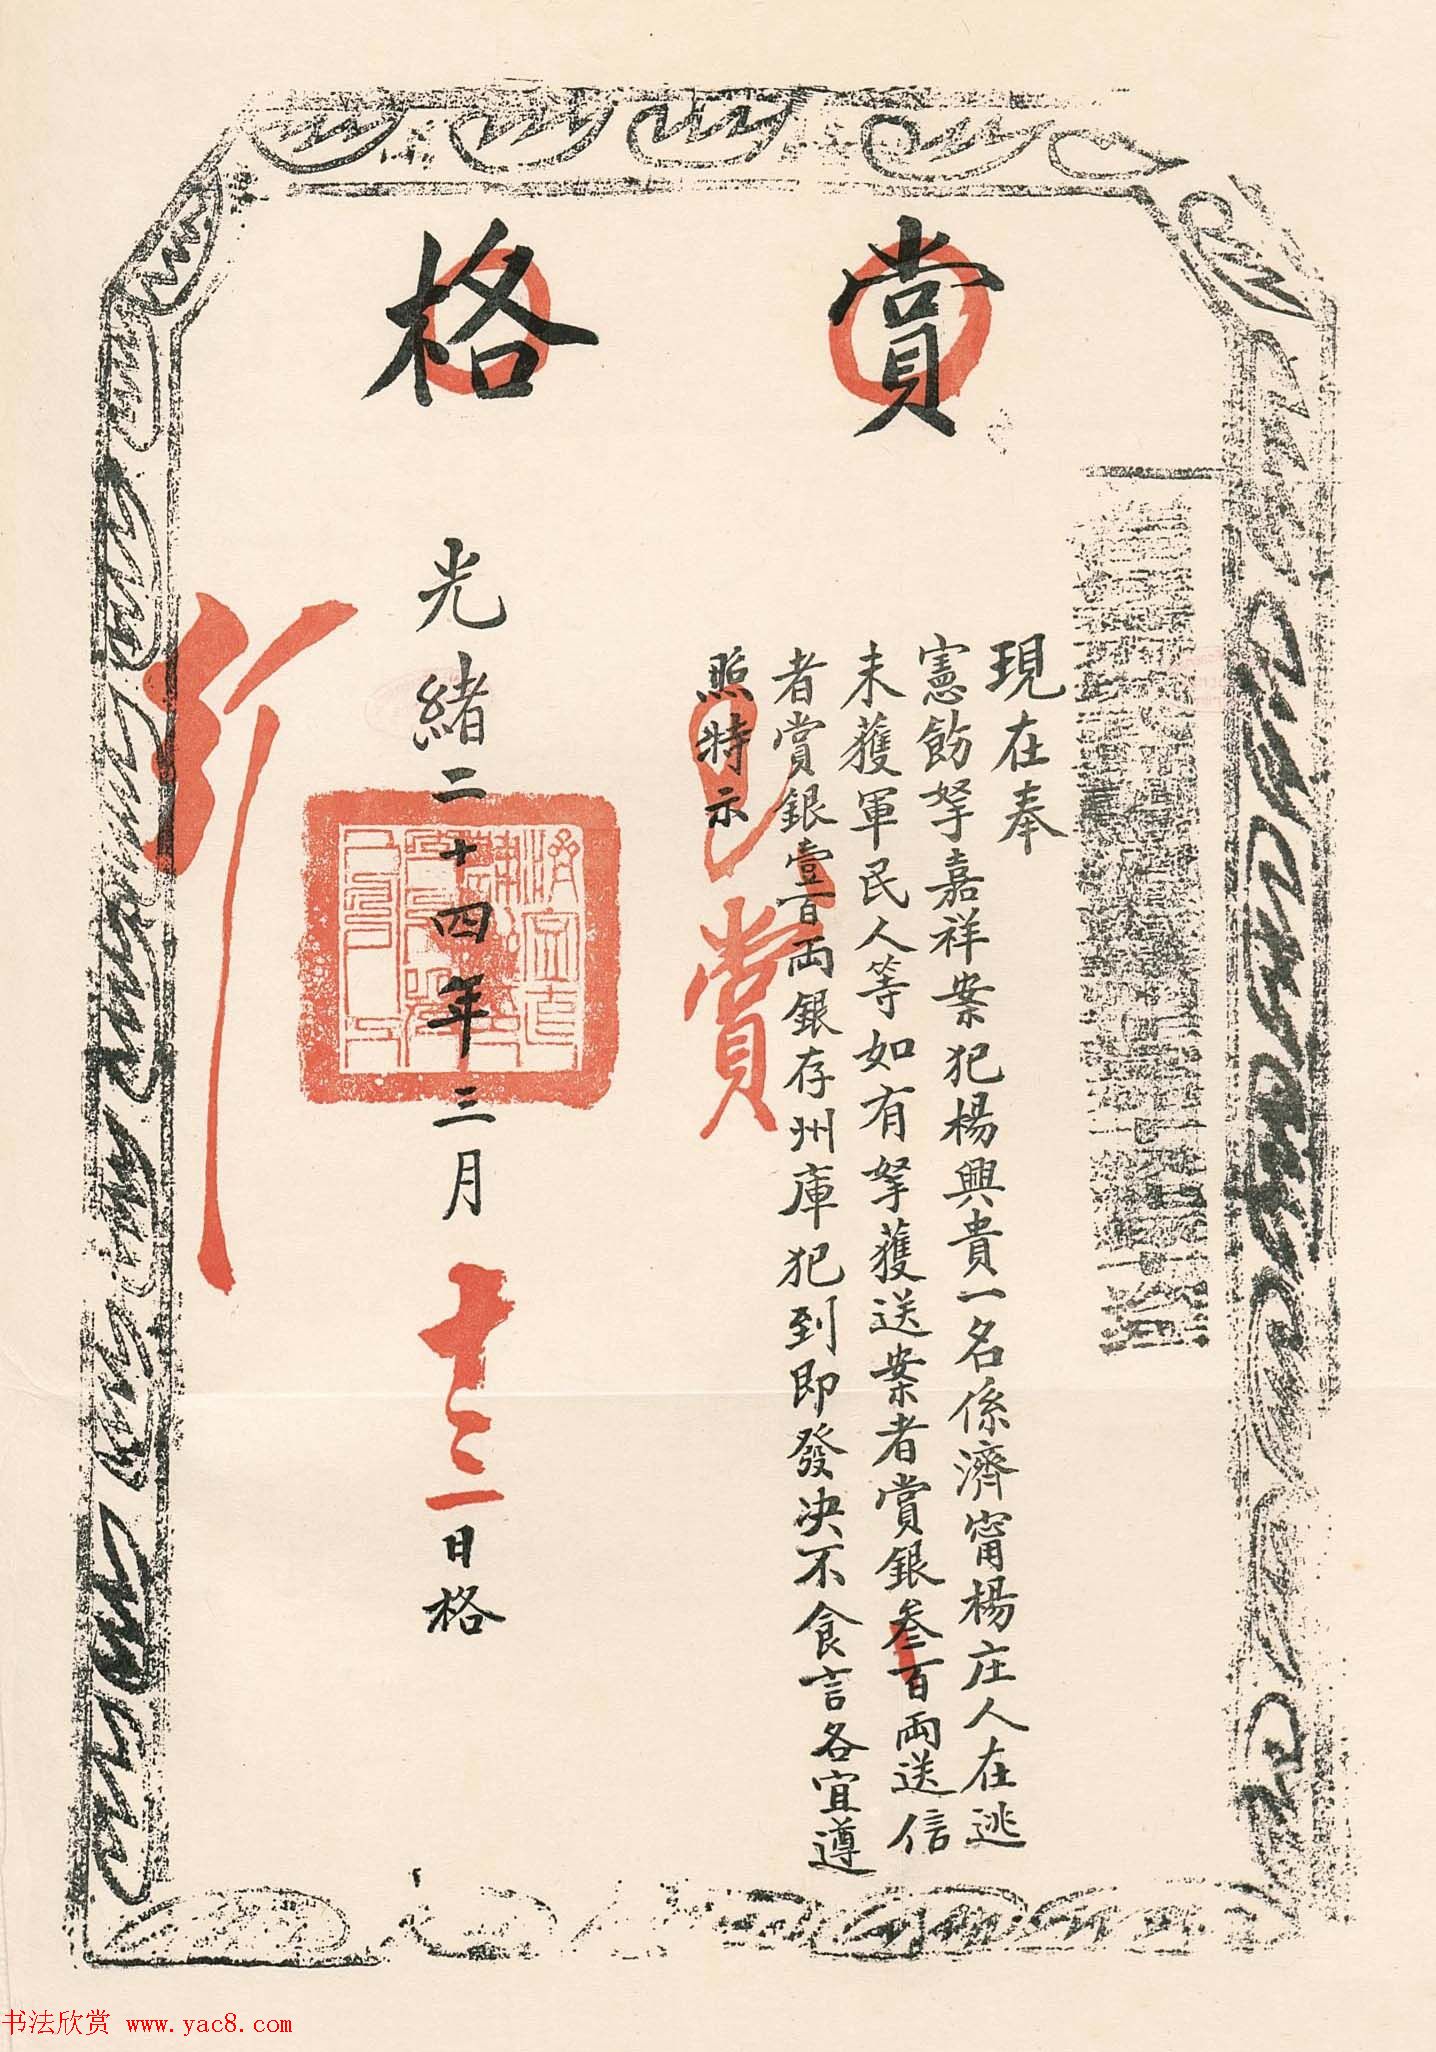 賞格
現在奉
憲飭拏嘉祥案犯楊興貴一名係濟甯楊庄人在逃
未獲軍民人等如有拏獲送案者賞銀叁百兩送信
者賞銀壹百兩銀存州庫犯到即發决不食言各宜遵
照特示
賞
光緒二十四年三月十三日格
书法欣赏 www.yac8.com